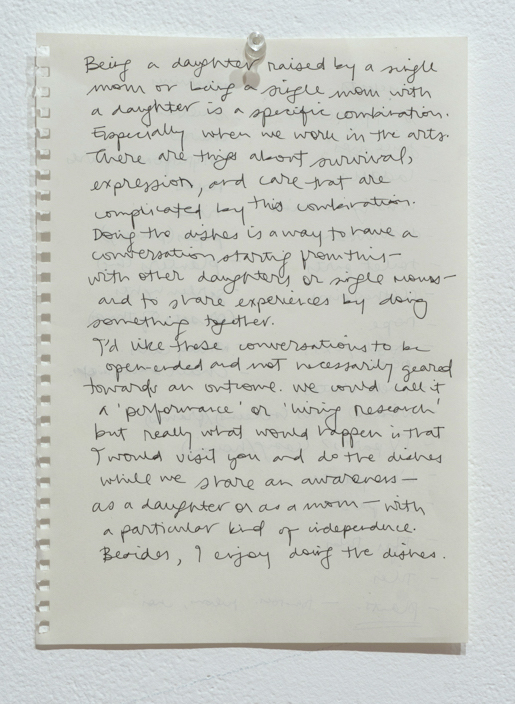 Being a daughter raised by a single
mom or being a single mom with
a daughter is a specific combination.
Especially when we work in the arts.
There are things about survival,
expression, and care that are
complicated by this combination.
Doing the dishes is a way to have a
conversation starting from this—
with other daughters or single moms—
and to share experiences by doing
something together.
I'd like these conversations to be
openended and not necessarily geared
towards an outcome. We could call it
a 'performance' or 'living research'
but really what would happen is that
I would visit you and do the dishes
while we share an awareness—
as a daughter or as a mom — with
a particular kind of independence.
Besides, I enjoy doing the dishes.